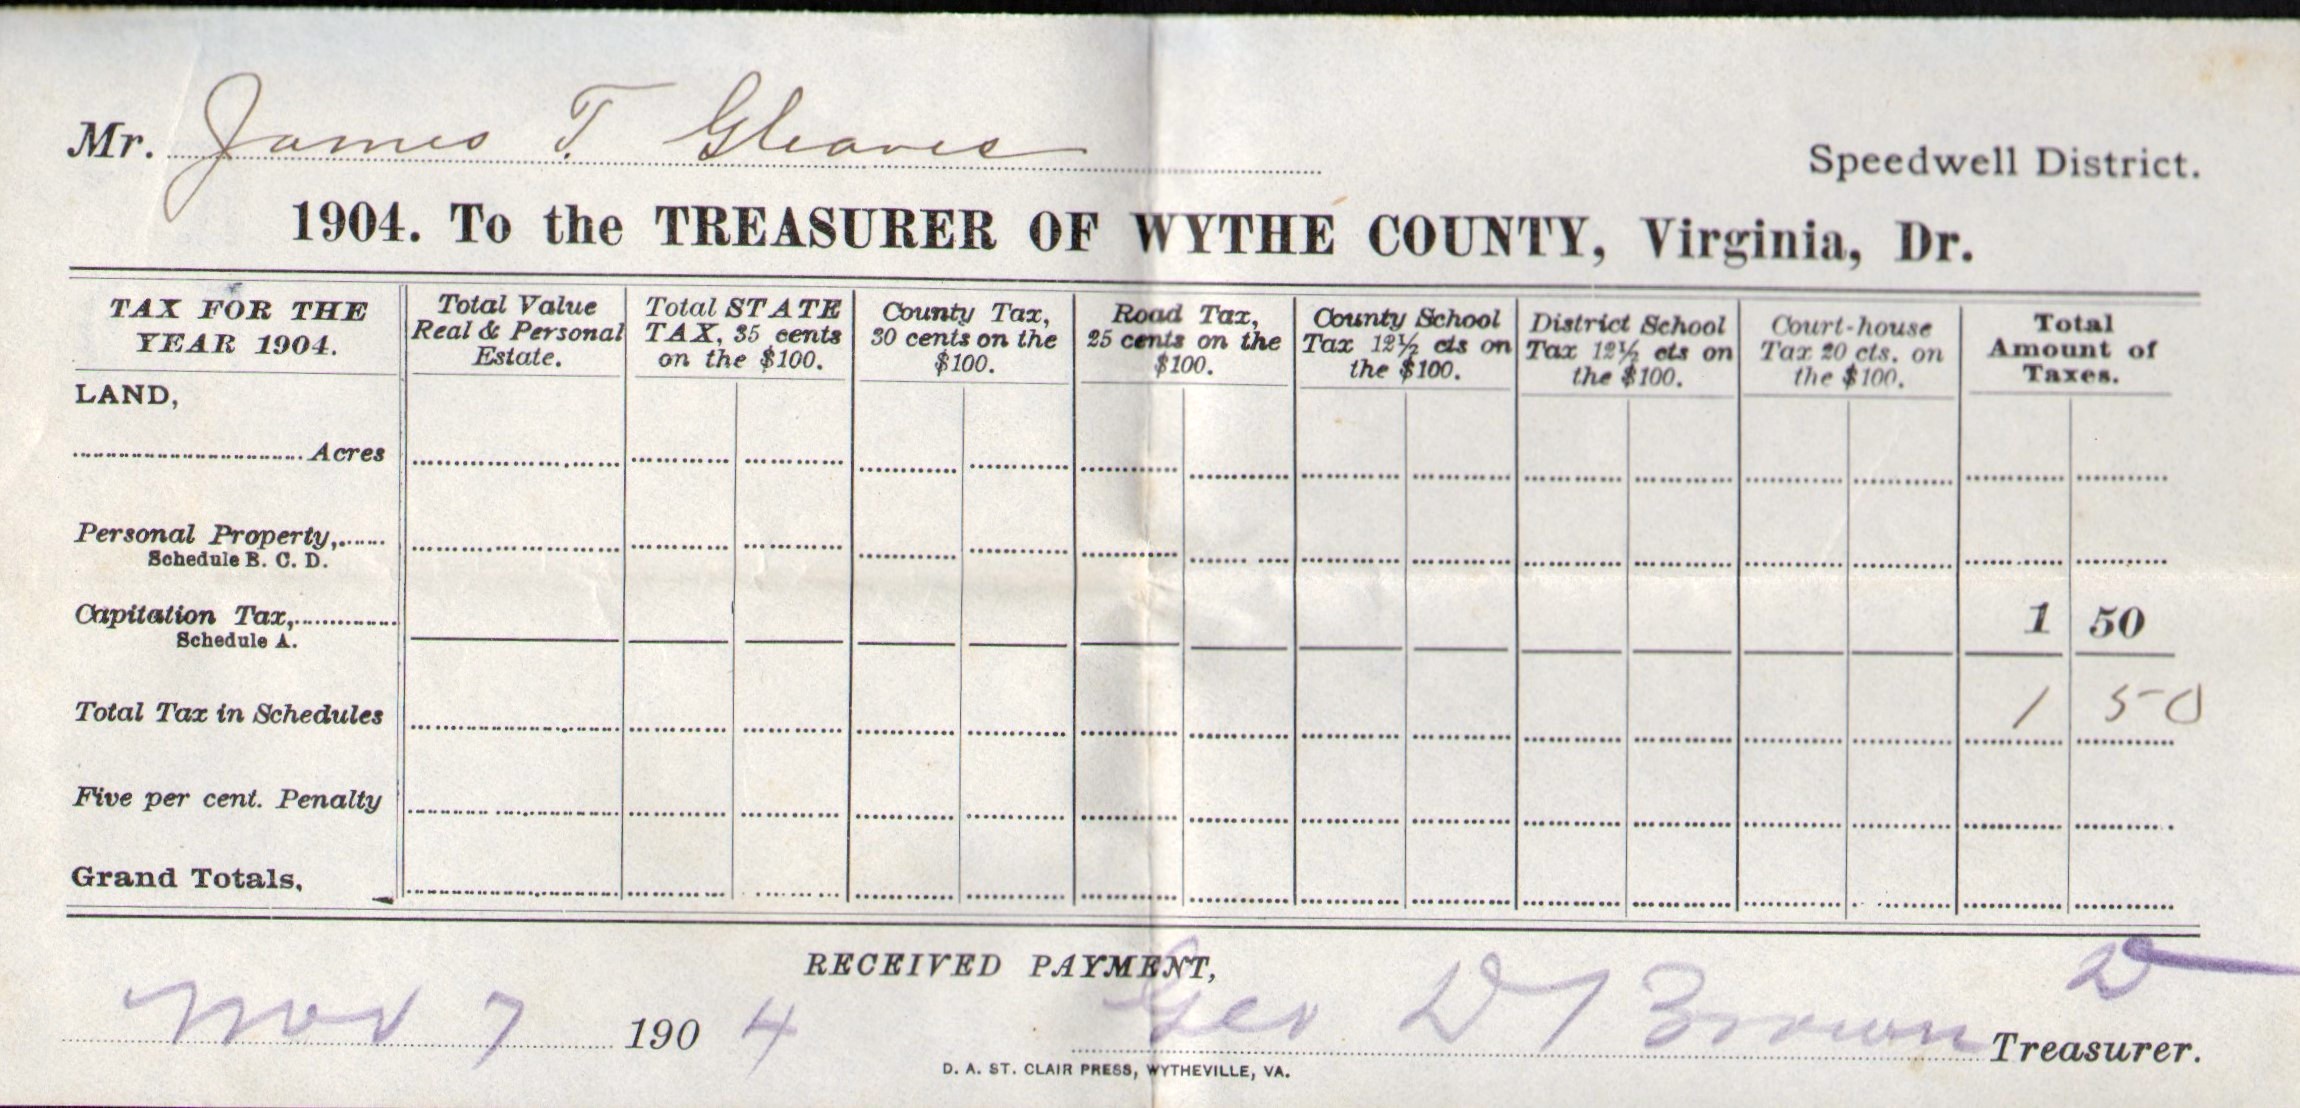 Mr. James T. Gleaves
Speedwell District.
1904. To the TREASURER OF WYTHE COUNTY, Virginia, Dr.
TAX FOR THE YEAR 1904.
Total Value Real & Personal Estate.
Total STATE TAX, 35 cents on the $100.
County Tax, 30 cents on the $100.
Road Tax, 25 cents on the $100.
County School Tax 12½ cts on the $100.
District School Tax 12½ cts on the $100.
Court-house Tax 20 cts. on the $100.
Total Amount of Taxes.
LAND,
Acres
Personal Property,
Schedule B. C. D.
Capitation Tax, 1 50
Schedule A.
Total Tax in Schedules 1 50
Five per cent. Penalty
Grand Totals.
RECEIVED PAYMENT,
Nov 7 1904 Geo Brown Treasurer.
D. A. ST. CLAIR PRESS, WYTHEVILLE, VA.